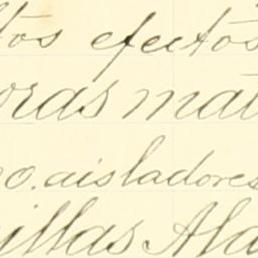 tos efectos
oras mat
no. aisladores
illas Ala